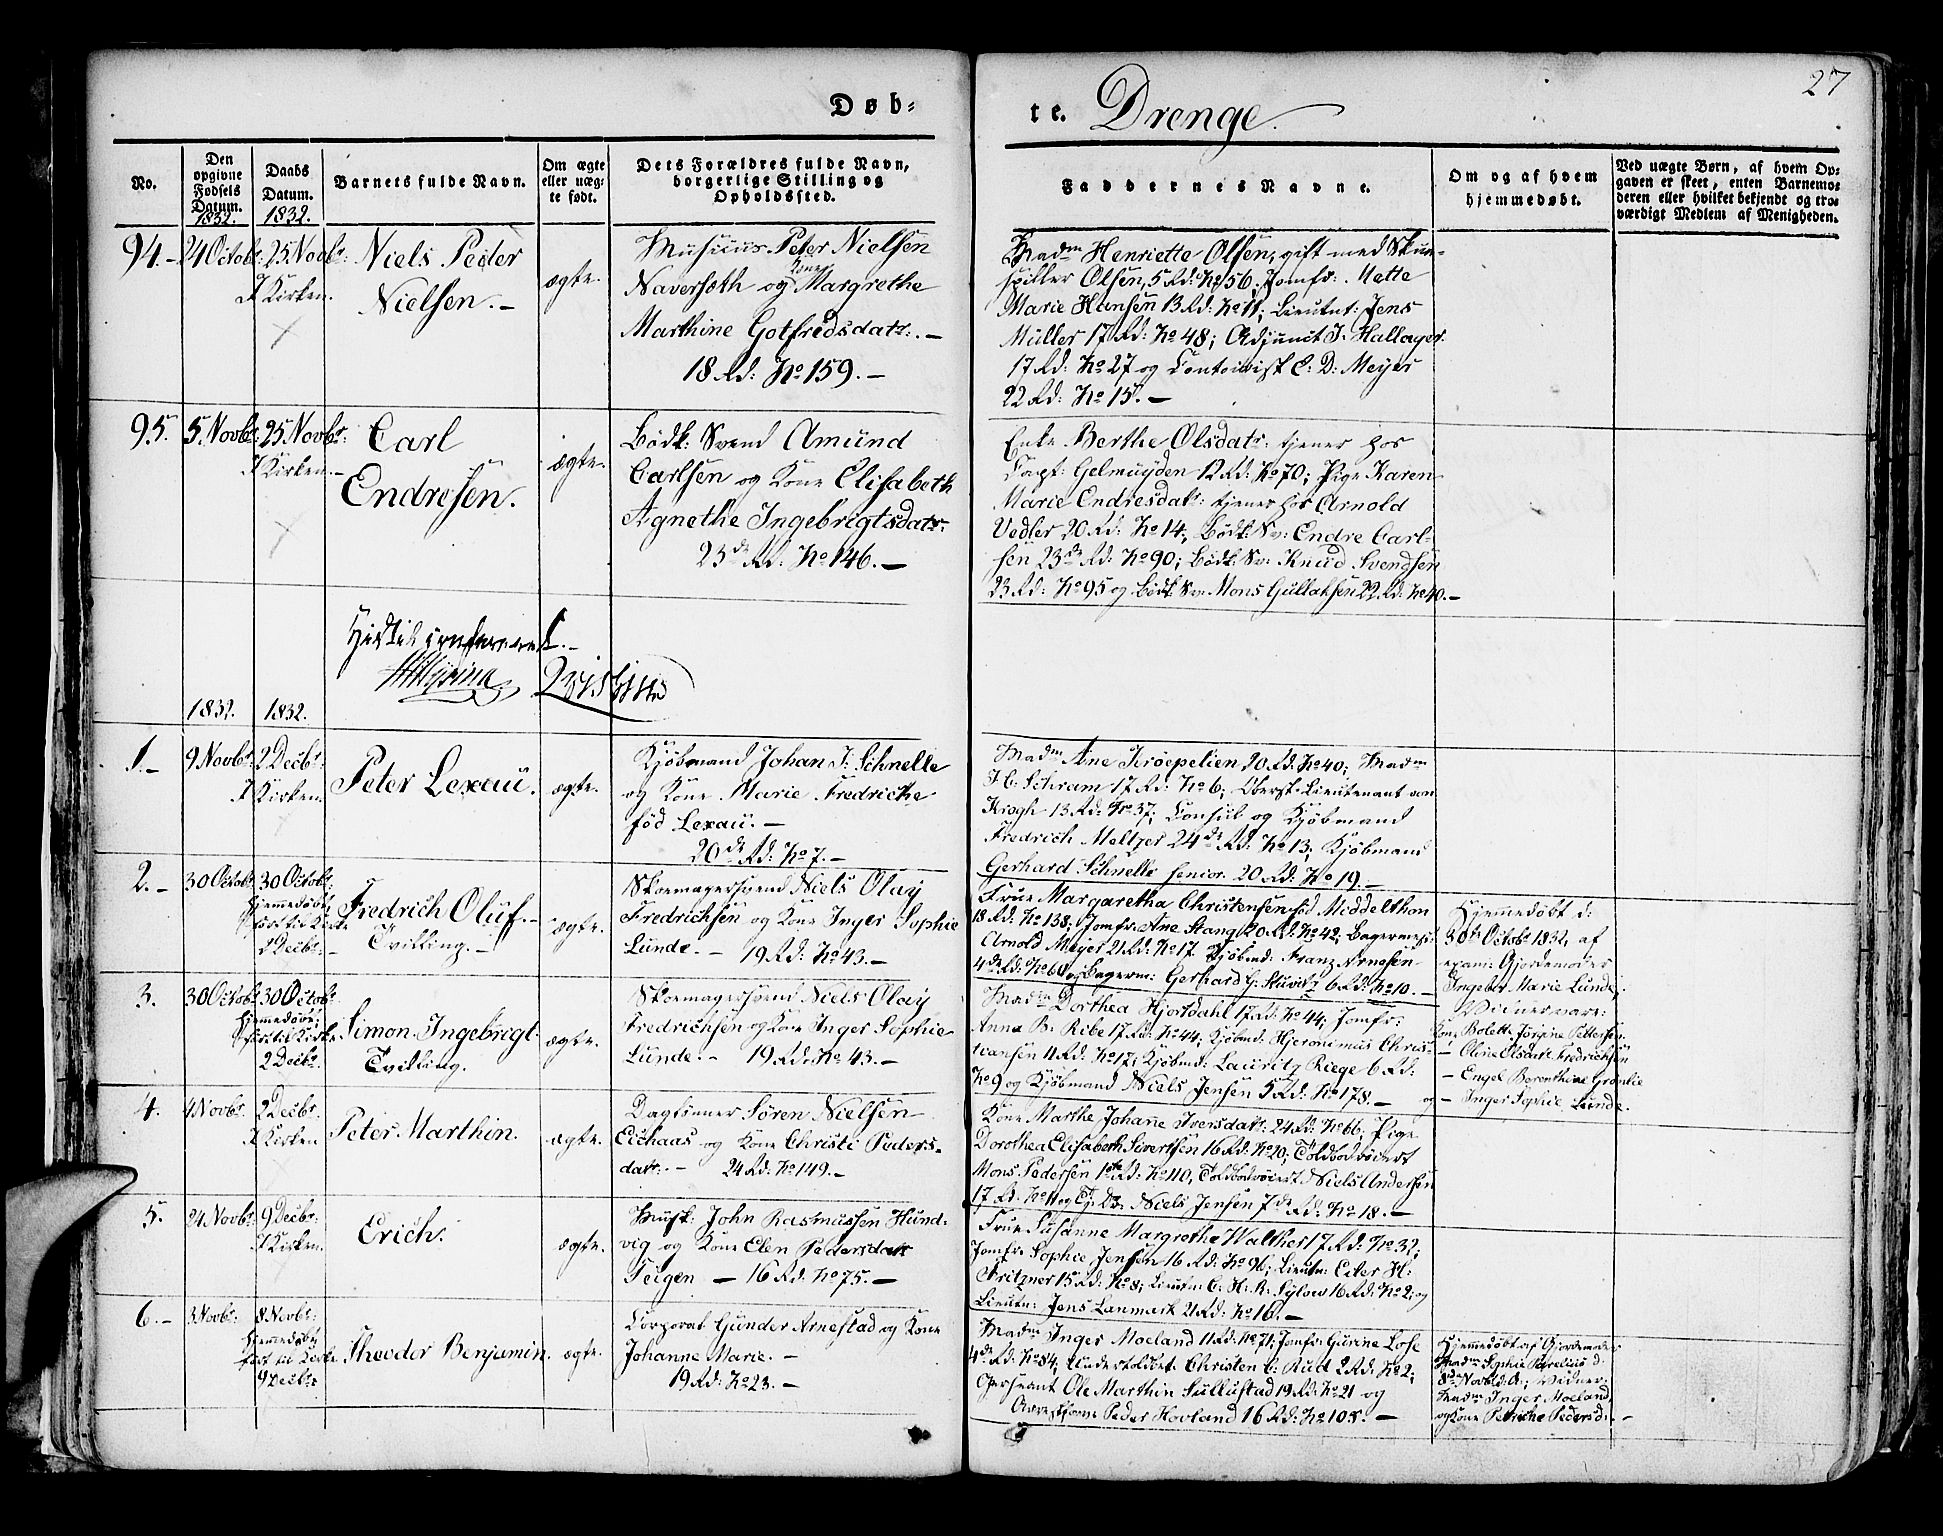 27
Døb-
te. Drenge.
No.
Den opgivne Fødsels Datum. 1832.
Daabs Datum. 1832.
Barnets fulde Navn.
Om ægte eller uægte født.
Dets Forældres fulde Navn, borgerlige Stilling og Opholdssted.
Faddernes Navne.
Om og af hvem hjemmedøbt.
Ved uægte Børn, af hvem Opgaven er skeet, enten Barnemoderen eller hvilket bekjendt og troværdigt Medlem af Menigheden.
94.-
24 Octobr:
25 Novbr:
I Kirken.
Niels Peder
Nielsen. -
ægte.
Peter Nielsen
Naversæth og Kone Margrethe
Marthine Gotfredsdatr: . -
18 Rd: No 159. -
Madm Henriette Olsen, gift med Skue-
spiller Olsen, 5 Rd: No 56, Jomfr: Mette
Marie Hansen 13 Rd: No 11; Lieutnt: Jens
Müller 17 Rd: No 48; Adjunct J. Hallager
17 Rd: No 27 og Contoirist C: D: Meyer
22 Rd: No 15. -
95.
5. Novbr:
25 Novbr:
I Kirken. -
Carl
Endresen.
ægte.
Bødk: Svend Amund
Carlsen og Kone Elisabeth
Agnethe Ingebrigtsdatr:
23de Rd: No 146. -
Enke Berthe Olsdatr: tjener hos
Capt: Gelmuyden 12 Rd: No 70; Pige Karen
Marie Endresdatr: tjener hos Arnold
Vedler 20 Rd: No 14, Bødk: Sv: Endre Carl-
sen 23de Rd: No 90; Bødk: Sv: Knud Svendsen
23 Rd: No 95 og Bødk: Sv: Mons Gullaksen 22 Rd: No 40. -
Hertil confereret. -
1832.
1832.
1. -
9 Novbr:
2 Decbr:
I Kirken.
Peter Lexau.
ægte.
Kjøbmand Johan J: Schnelle
og Kone Marie Fredriche
fød Lexau. -
20de Rd: No 7. -
Madm Ane Krøepelien 20 Rd: No 40; Madm
H: Schram 17 Rd: No 6; Oberst-Lieutenant von
Krogh 13 Rd: No 37; Consul og Kjøbmand
Fredrich Meltzer 24de Rd: No 13; Kjøbmand
Gerhard Schnelle senior. 20 Rd: No 19. -
2. -
30 Octobr:
30 Octobr:
Hjemmedøbt,
først til Kirke
2 Decbr: -
Fredrich Oluf. -
Tvilling. -
ægte.
Skoemagersvend Niels Olay
Fredrichsen og Kone Inger Sophie
Lunde. - 19 Rd: No 43. -
Frue Margaretha Christensen fød Middelthon
18 Rd: No 138; Jomfr: Ane Stang 20 Rd: No 42; Bagermest:
Arnold Meyer 21 Rd: No 17. Kjøbmd: Franz Arnesen
4de Rd: No 60 og Bagerm: Gerhard G: 6 Rd: No 10. -
Hjemmedøbt d:
30te Octobr 1832, af
exam: Gjordemoder
Ingebr Marie Lunde;
Vidner vare:
Kone Bolett Jörgine Pettersen
- Oline Olsdatr Fredrichsen
- Engel Berenthine Grønlie
og - Inger Sophie Lunde.
3.
30 Octobr:
30 Octobr:
Hjemmedøbt,
først til Kirke
2 Decbr.
Simon Ingebrigt.
Tvilling.
ægte.
Skoemagersvend Niels Olay
Fredrichsen og Kone Inger Sophie
Lunde. - 19 Rd: No 43. -
Madm Dorthea Hjortdahl 17 Rd: No 44; Jomfr:
Anna B. Ribe 17 Rd: No 44; Kjøbmd: Hjeronimus Chris-
tiansen 11 Rd: No 17; Kjøbmd: Lauritz Riege 6 Rd:
No 9 og Kjøbmand Niels Jensen 5 Rd: No 178. -
4.
4 Novbr:
2 Decbr.
I Kirken
Peter Marthin.
ægte.
Dagtinner Søren Nielsen
Eichaas og Kone Christi Peders-
datr: - 24 Rd: No 149. -
Kone Marthe Johane Iversdatr: 24 Rd: No 66; Pige
Dorothea Elisabeth Sivertsen 16 Rd: No 20;
Mons Pedersen 1ste Rd: No 40, Niels Andersen
17 Rd. No 11 og Niels Jensen 7de Rd: No 18. -
5.
24 Novbr:
9 Decbr:
I Kirken.
Erich.
ægte.
Musk: John Rasmussen Hund-
vig og Kone Elen Pedersdatr
Teigen - 16 Rd: No 75. -
Frue Susanne Margrethe Walther 17 Rd: No 32;
Jomfr Sophie Jensen 16 Rd: No 96; Lieutn: H:
Fritzner 15 Rd: No 8; Lieutn: C: H: R: Sylow 16 Rd: No 2; og
Lieutn: Jens Lanmark 21 Rd: No 16. -
6. -
3 Novbr:
8 Novbr:
Hjemmedøbt,
først til Kirke
9 Decbr:
Theoder Benjamin.
ægte.
Corporal Gunder Arnestad og Kone
Johanne Marie. -
19 Rd: No 23. -
Madm Inger Moeland 11 Rd: No 71; Jomfr: Gurine Lose
4de Rd: No 84; Christen C: Rud 2 Rd: No 2;
Sersjeant Ole Marthin Sullustad 19 Rd: No 21 og
Peder Hovland 16 Rd: No 105. -
Hjemmedøbt af Gjordemoder
Madm Sophie d:
8de Novbr d: A:; Vidner:
Madm Inger Moeland
og Kone Petriche Pedersd: -